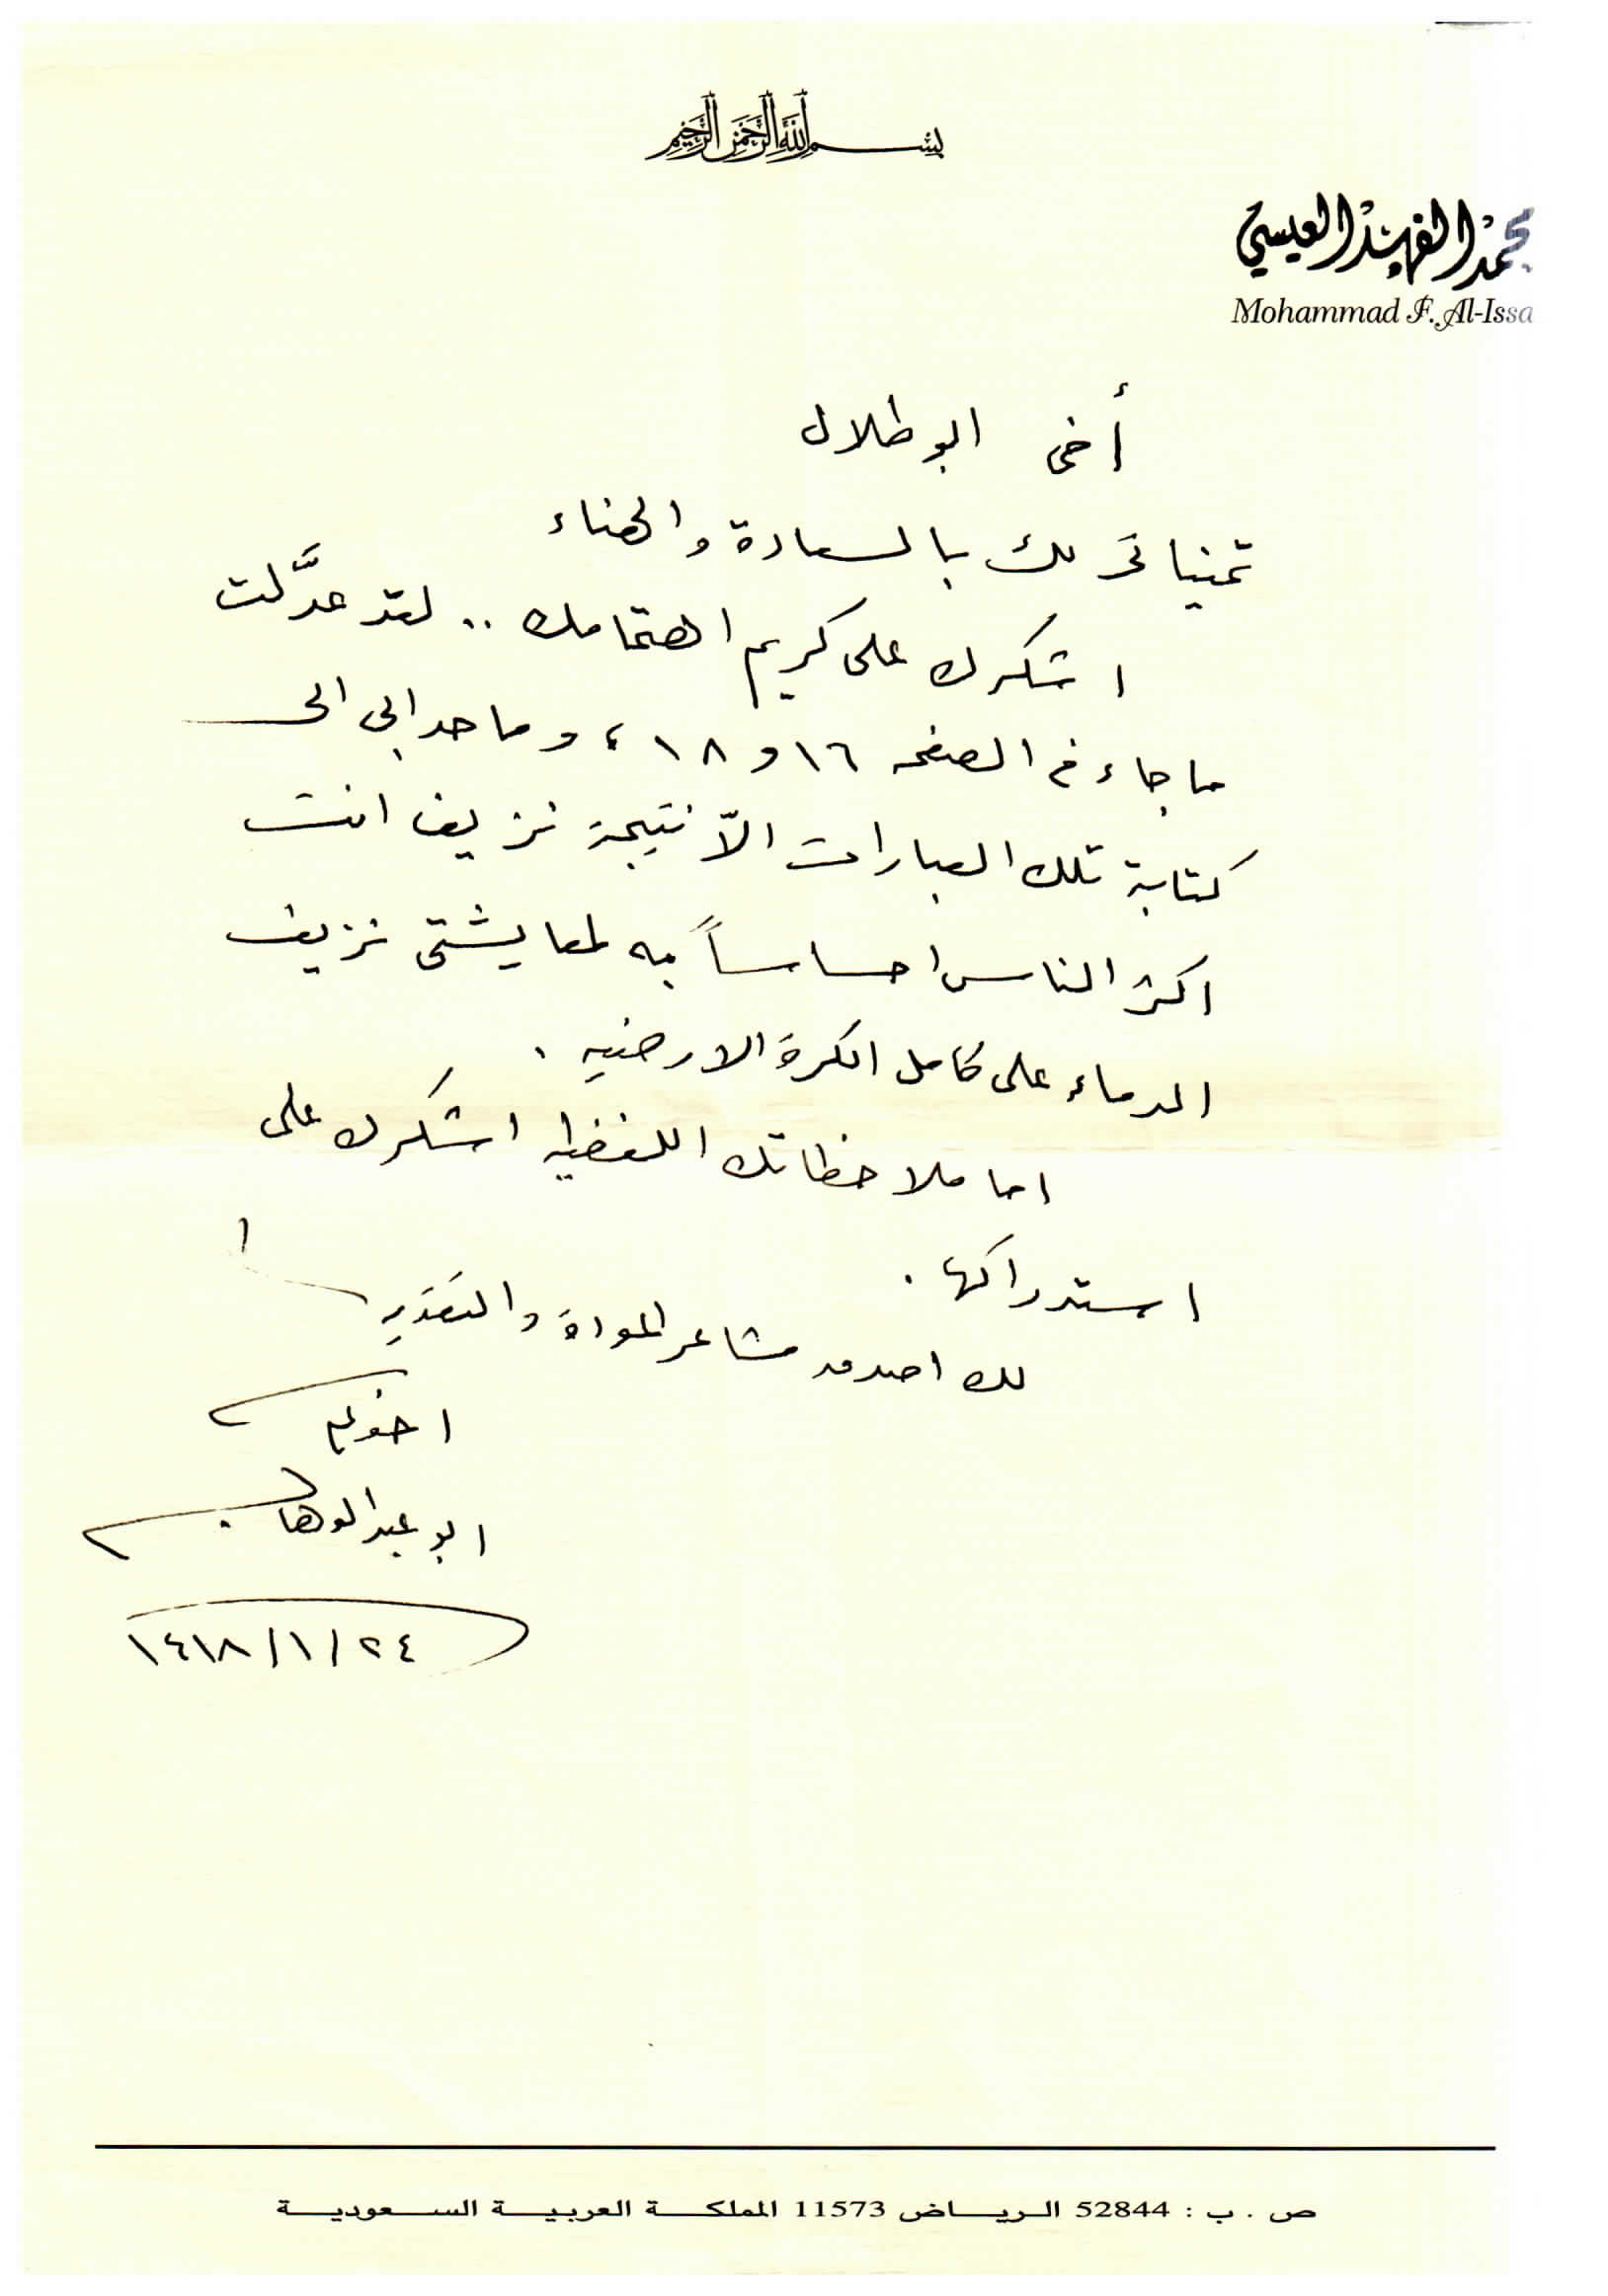 بسم الله الرحمن الرحيم
محمد الفهد العيسى
Mohammad F. Al-Issa
أخي ابو طلال
تمنياتي لك بالسعادة والهناء
اشكرك على كريم اهتمامك .. لقد عدَّلت
ما جاء في الصفحه ١٦ و ١٨ ، وما حدا بي الى
كتابة تلك العبارات الاّ نتيجة نزيف انت
اكثر الناس احساساً به لمعايشتي نزيف
الدماء على كامل الكرة الارضيه .
اما ملاحظاتك اللفظيه اشكرك على
استدراكها .
لك اصدق مشاعر المودة والتقدير
اخوكم
ابو عبدالوهاب
١٤١٨/١/٢٤
ص . ب : 52844 الرياض 11573 المملكة العربية السعودية